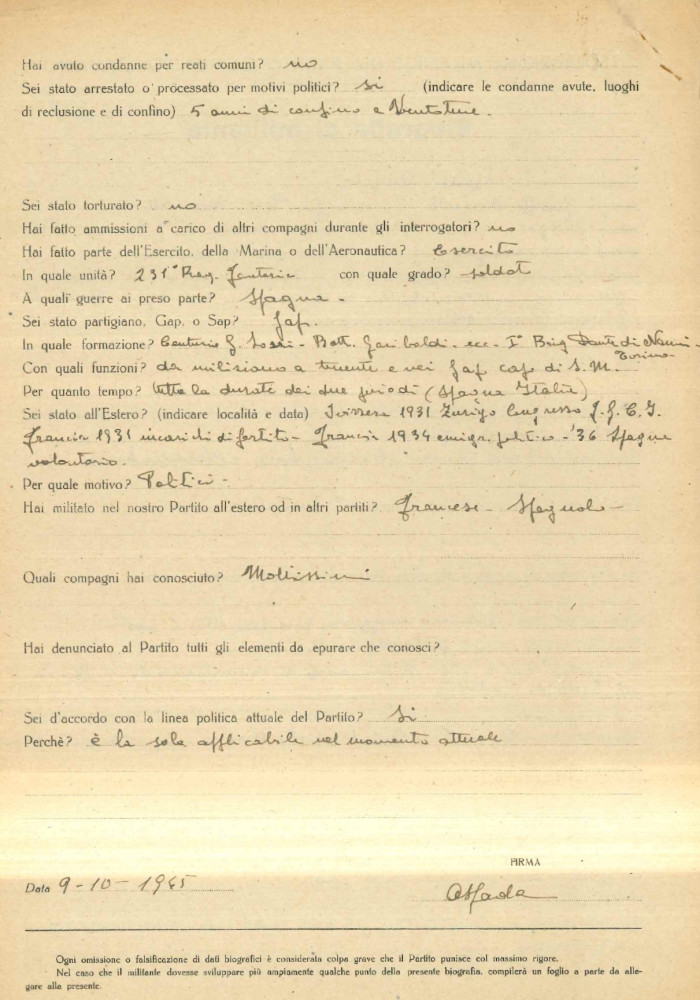 Hai avuto condanne per reati comuni? no
Sei stato arrestato o processato per motivi politici? si (indicare le condanne avute, luoghi
di reclusione e di confino) 5 anni di confino a Ventotene.
Sei stato torturato? no
Hai fatto ammissioni a carico di altri compagni durante gli interrogatori? no
Hai fatto parte dell'Esercito, della Marina o dell'Aeronautica? Esercito
In quale unità? 231° Reg. Fanteria con quale grado? soldat
A quali guerre ai preso parte? Spagna -
Sei stato partigiano, Gap, o Sap? Gap.
In quale formazione? Centuria G. Sozzi - Batt. Garibaldi - ecc - I° Brig Dante di Nanni -
Torino -
Con quali funzioni? da miliziano a tenente e nei Gap capo di S. M.
Per quanto tempo? tutta la durata dei due periodi (Spagna Italia)
Sei stato all'Estero? (indicare località e data) Svizzera 1931 Zurigo Congresso F. G. C. I.
Francia 1931 incarichi di partito - Francia 1934 emigr. politico - '36 Spagna
volontario.
Per quale motivo? Politici -
Hai militato nel nostro Partito all'estero od in altri partiti? Francese - Spagnolo -
Quali compagni hai conosciuto? Moltissimi
Hai denunciato al Partito tutti gli elementi da epurare che conosci?
Sei d'accordo con la linea politica attuale del Partito? Si
Perchè? è la sola applicabile nel momento attuale
FIRMA
Data 9-10-1945
Ogni omissione o falsificazione di dati biografici è considerata colpa grave che il Partito punisce col massimo rigore.
Nel caso che il militante dovesse sviluppare più ampiamente qualche punto della presente biografia, compilerà un foglio a parte da alle-
gare alla presente.